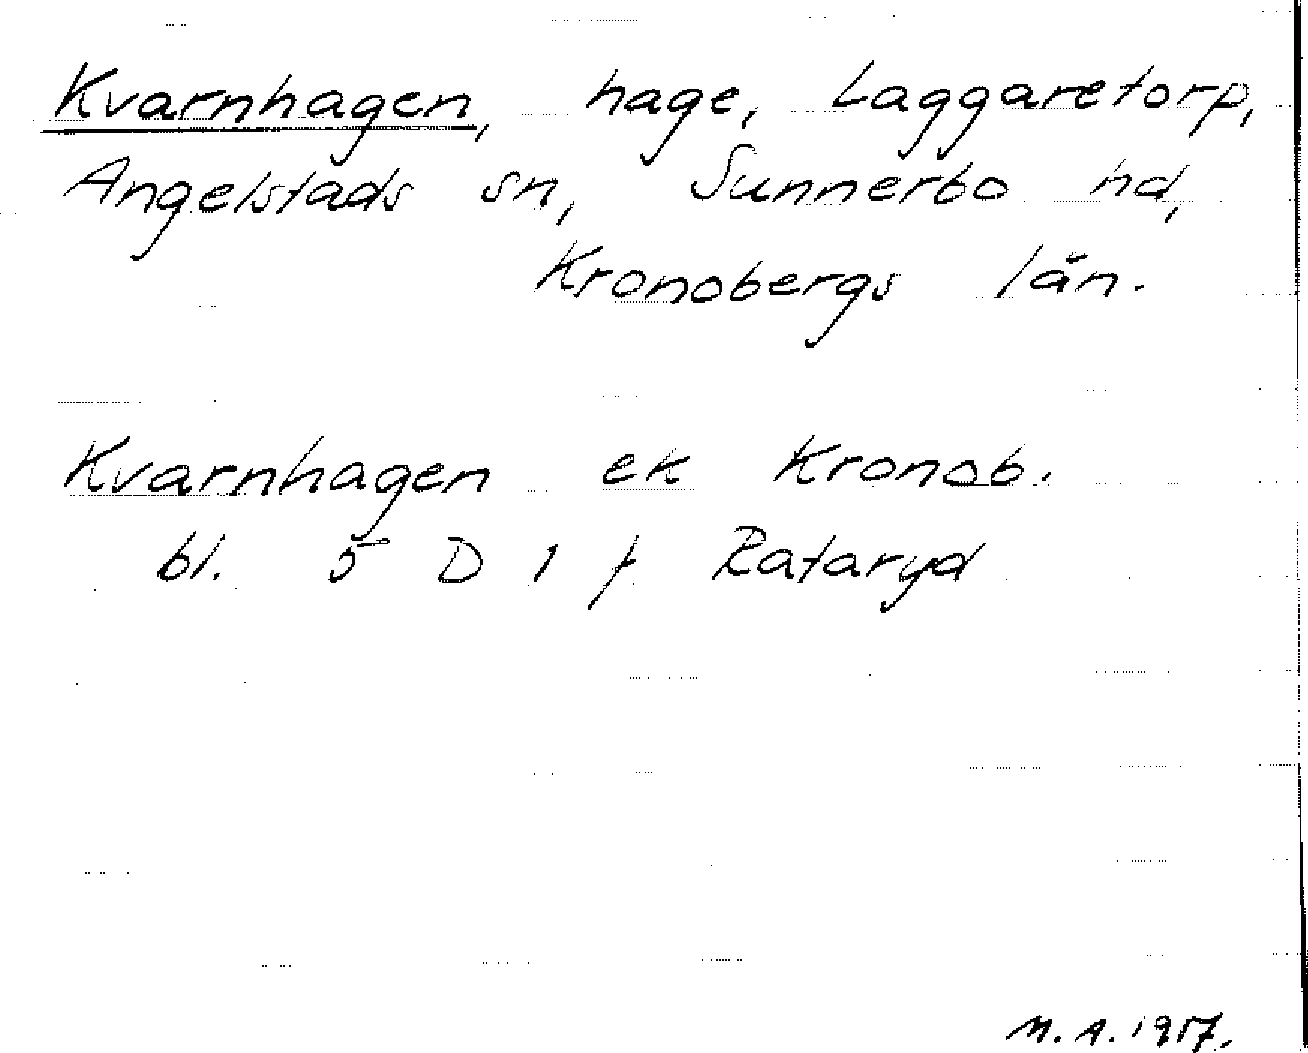 Kvarnhagen, hage, Laggaretorp,
Angelstads sn, Sunnerbo hd,
Kronobergs län.
Kvarnhagen ek Kronob.
bl. 5 D 1 f Rataryd
M.A. 1957.